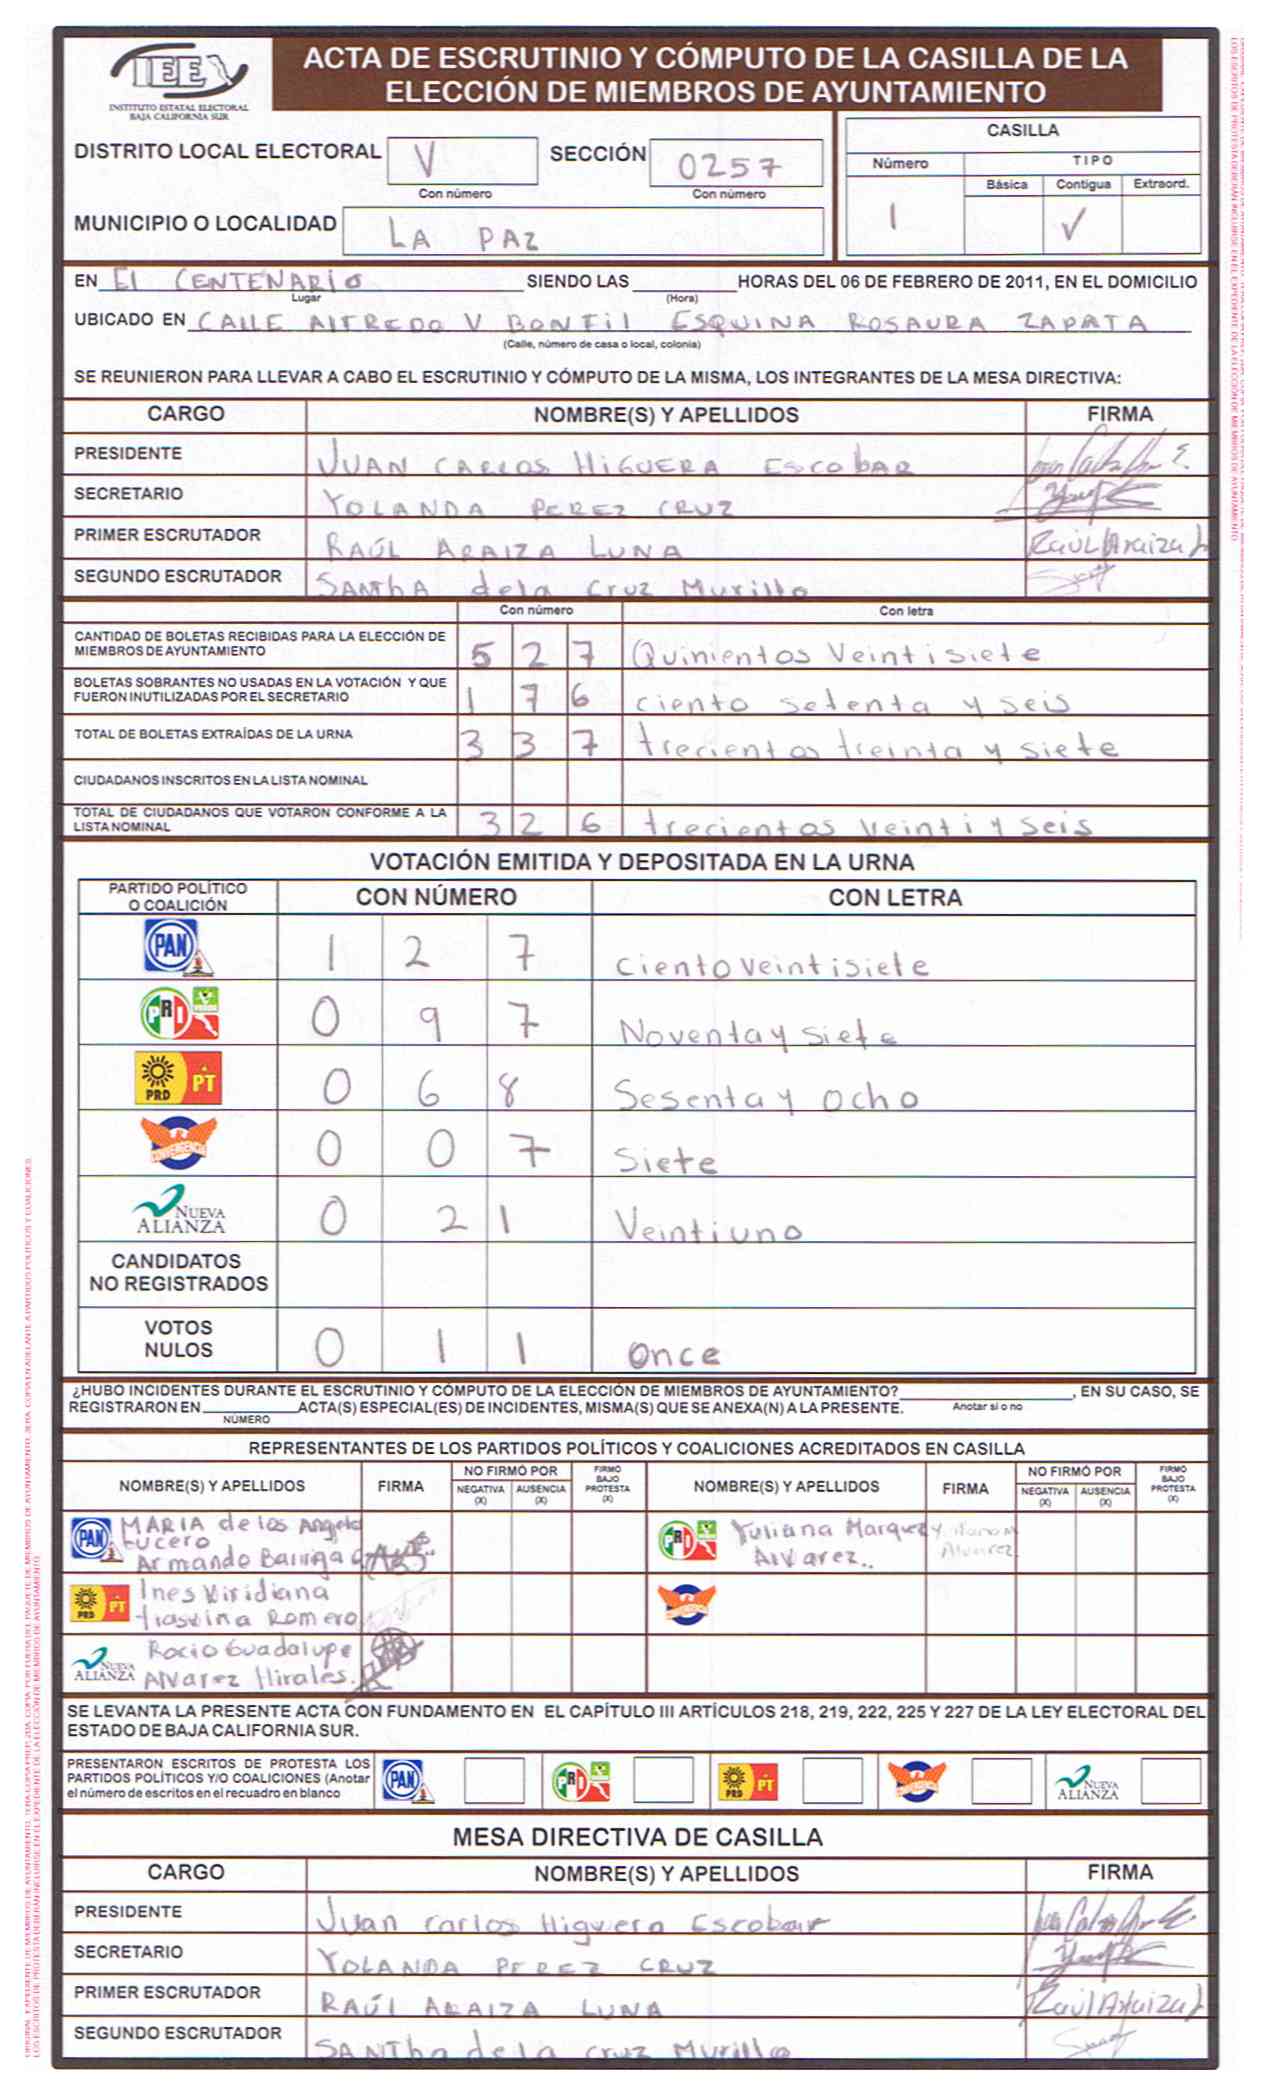 IEE
INSTITUTO ESTATAL ELECTORAL
BAJA CALIFORNIA SUR
ACTA DE ESCRUTINIO Y CÓMPUTO DE LA CASILLA DE LA
ELECCIÓN DE MIEMBROS DE AYUNTAMIENTO
DISTRITO LOCAL ELECTORAL V SECCIÓN 0257
Con número Con número
MUNICIPIO O LOCALIDAD LA PAZ
CASILLA
Número TIPO
Básica Contigua Extraord.
1 ✓
EN El CENTENARIO SIENDO LAS HORAS DEL 06 DE FEBRERO DE 2011, EN EL DOMICILIO
Lugar (Hora)
UBICADO EN CALLE AlFREDO V BONFil ESQUINA ROSAURA ZAPATA
(Calle, número de casa o local, colonia)
SE REUNIERON PARA LLEVAR A CABO EL ESCRUTINIO Y CÓMPUTO DE LA MISMA, LOS INTEGRANTES DE LA MESA DIRECTIVA:
CARGO NOMBRE(S) Y APELLIDOS FIRMA
PRESIDENTE JUAN CARLOS HIGUERA ESCObAR
SECRETARIO YOLANDA PEREZ CRUZ
PRIMER ESCRUTADOR RAÚL ARAIZA LUNA Raúl Araiza L
SEGUNDO ESCRUTADOR SANThA dela Cruz Murillo
Con número Con letra
CANTIDAD DE BOLETAS RECIBIDAS PARA LA ELECCIÓN DE
MIEMBROS DE AYUNTAMIENTO 5 2 7 Quinientos Veintisiete
BOLETAS SOBRANTES NO USADAS EN LA VOTACIÓN Y QUE
FUERON INUTILIZADAS POR EL SECRETARIO 1 7 6 ciento setenta y seis
TOTAL DE BOLETAS EXTRAÍDAS DE LA URNA 3 3 7 trecientos treinta y siete
CIUDADANOS INSCRITOS EN LA LISTA NOMINAL
TOTAL DE CIUDADANOS QUE VOTARON CONFORME A LA
LISTA NOMINAL 3 2 6 trecientos veinti y seis
VOTACIÓN EMITIDA Y DEPOSITADA EN LA URNA
PARTIDO POLÍTICO
O COALICIÓN CON NÚMERO CON LETRA
PAN 1 2 7 Ciento veintisiete
PRI VERDE 0 9 7 Noventa y siete
PRD PT 0 6 8 Sesenta y ocho
CONVERGENCIA 0 0 7 Siete
NUEVA ALIANZA 0 2 1 Veintiuno
CANDIDATOS
NO REGISTRADOS
VOTOS
NULOS 0 1 1 Once
¿HUBO INCIDENTES DURANTE EL ESCRUTINIO Y CÓMPUTO DE LA ELECCIÓN DE MIEMBROS DE AYUNTAMIENTO? , EN SU CASO, SE
REGISTRARON EN ACTA(S) ESPECIAL(ES) DE INCIDENTES, MISMA(S) QUE SE ANEXA(N) A LA PRESENTE. Anotar si o no
NÚMERO
REPRESENTANTES DE LOS PARTIDOS POLÍTICOS Y COALICIONES ACREDITADOS EN CASILLA
NOMBRE(S) Y APELLIDOS FIRMA NO FIRMÓ POR NEGATIVA (X) AUSENCIA (X) FIRMÓ BAJO PROTESTA (X) NOMBRE(S) Y APELLIDOS FIRMA NO FIRMÓ POR NEGATIVA (X) AUSENCIA (X) FIRMÓ BAJO PROTESTA (X)
PAN MARIA de los Angeles
Lucero
Armando Barriga
PRI Yuliana Marquez
Alvarez..
PRD PT Ines Viridiana
Romero
CONVERGENCIA
NUEVA ALIANZA Rocio Guadalupe
Alvarez Hirales.
SE LEVANTA LA PRESENTE ACTA CON FUNDAMENTO EN EL CAPÍTULO III ARTÍCULOS 218, 219, 222, 225 Y 227 DE LA LEY ELECTORAL DEL
ESTADO DE BAJA CALIFORNIA SUR.
PRESENTARON ESCRITOS DE PROTESTA LOS
PARTIDOS POLÍTICOS Y/O COALICIONES (Anotar
el número de escritos en el recuadro en blanco
PAN PRI PRD PT CONVERGENCIA NUEVA ALIANZA
MESA DIRECTIVA DE CASILLA
CARGO NOMBRE(S) Y APELLIDOS FIRMA
PRESIDENTE Juan Carlos Higuera Escobar
SECRETARIO YOLANDA PEREZ CRUZ
PRIMER ESCRUTADOR RAÚl ARAIZA LUNA Raúl Araiza L
SEGUNDO ESCRUTADOR SANTha de la Cruz Murillo